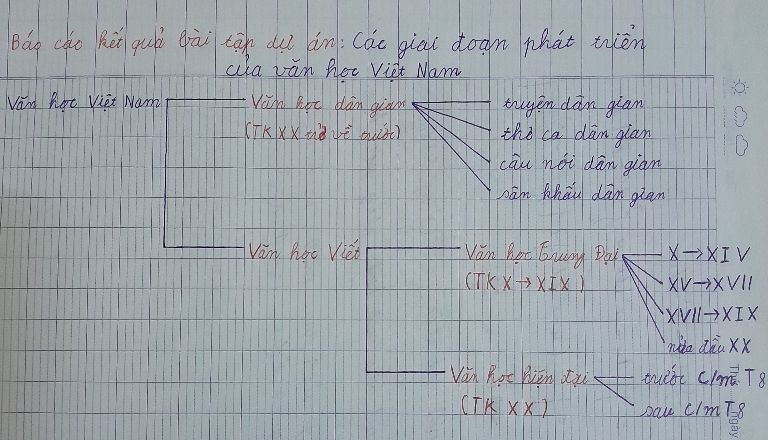 Báo cáo kết quả bài tập dự án: Các giai đoạn phát triển
của văn học Việt Nam
Văn học Việt Nam
Văn học dân gian
(TK XX trở về trước)
truyện dân gian
thơ ca dân gian
câu nói dân gian
sân khấu dân gian
Văn học Viết
Văn học Trung Đại
(TK X → XIX)
X → XIV
XV → XVII
XVII → XIX
nửa đầu XX
Văn học hiện đại
(TK XX)
trước C/m T8
sau C/m T8
Ngày